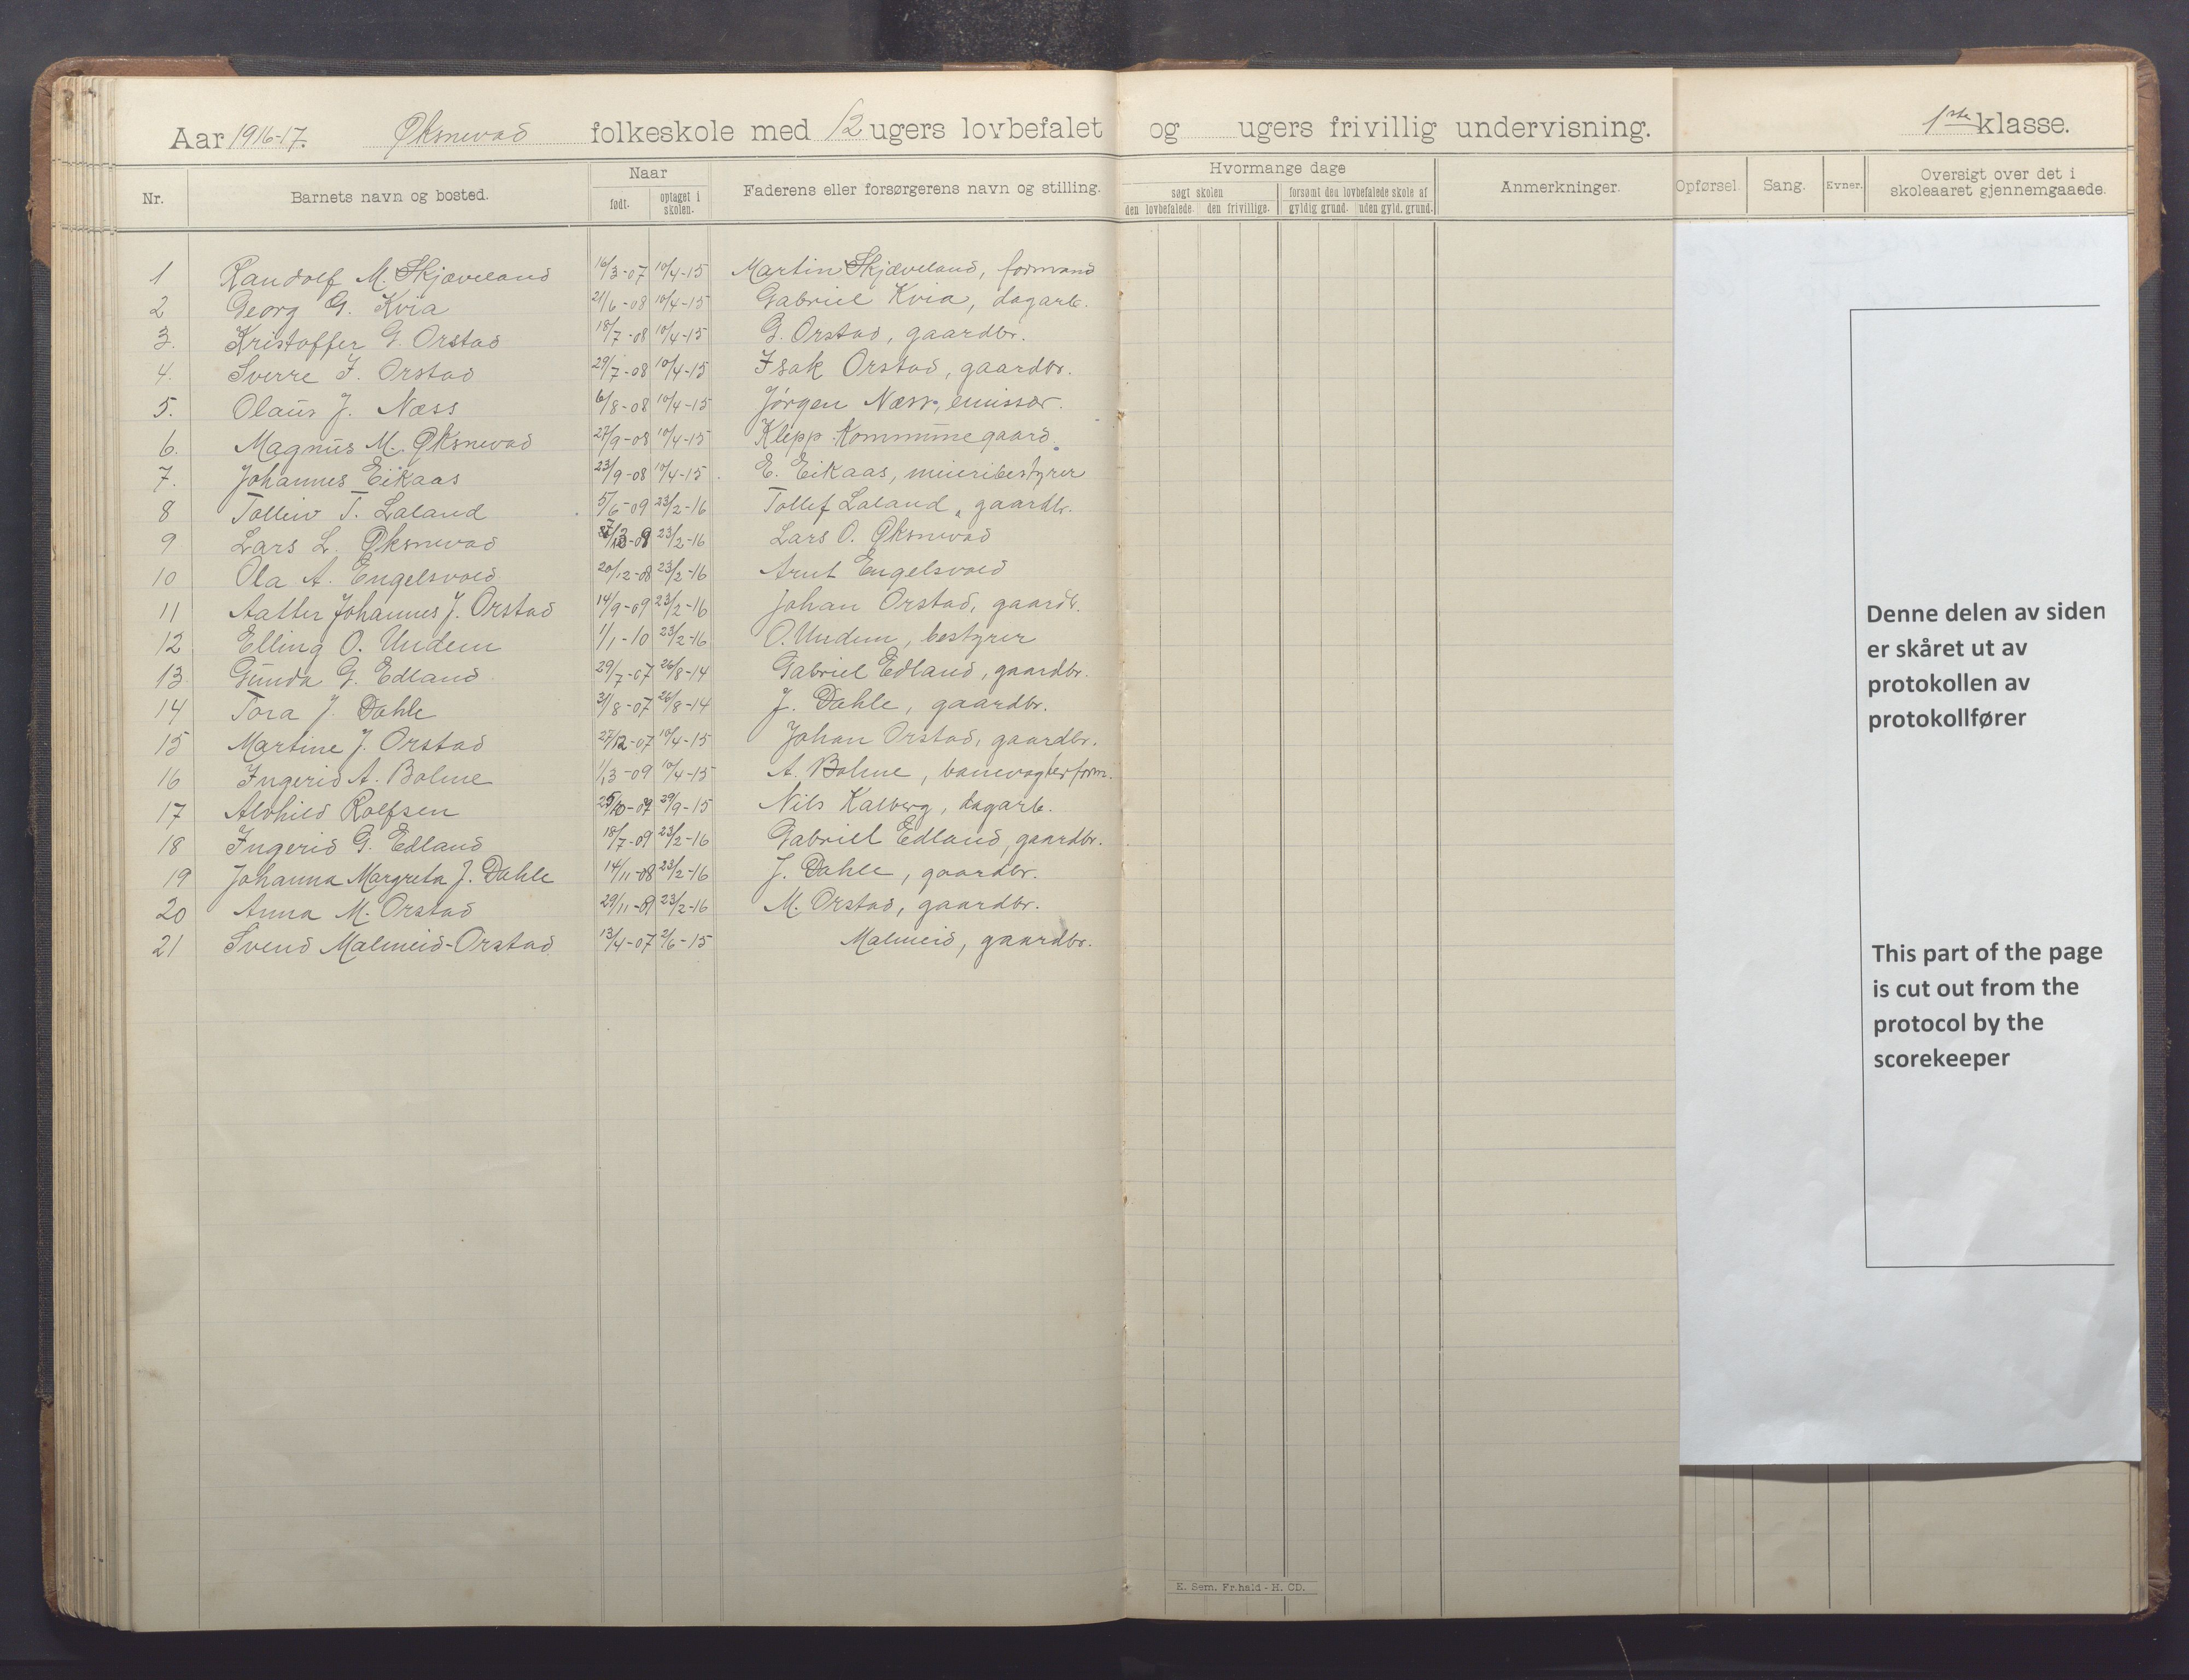 Aar 1916-17. Øksnevad folkeskole med 12 ugers lovbefalet og ugers frivillig undervisning. 1ste klasse.
Nr. Barnets navn og bosted. Naar Faderens eller forsørgerens navn og stilling. Hvormange dage Anmerkninger. Opførsel. Sang. Evner. Oversigt over det i skoleaaret gjennemgaaede.
født. optaget i skolen. søgt skolen forsømt den lovbefalede skole af
den lovbefalede. den frivillige. gyldig grund. uden gyld. grund.
1 Randolf M. Skjæveland 16/3-07 10/4-15 Martin Skjæveland, formand
2 Georg G. Kvia 21/6-08 10/4-15 Gabriel Kvia, dagarb.
3. Kristoffer G. Orstad 18/7-08 10/4-15 G. Orstad, gaardbr.
4. Sverre I. Orstad 29/7-08 10/4-15 Isak Orstad, gaardbr.
5. Olaus J. Næss 6/8-08 10/4-15 Jørgen Næss, emissær.
6. Magnus M. Øksnevad 27/9-08 10/4-15 Klepp Kommunegaard.
7. Johannes Eikaas 23/9-08 10/4-15 E. Eikaas, meieribestyrer
8 Ælleiv T. Laland 5/6-09 23/2-16 Tollef Laland, gaardbr.
9 Lars L. Øksnevad 23/2-16 Lars O. Øksnevad
10 Ola A. Engelsvold 20/12-08 23/2-16 Arnt Engelsvold
11 Johannes J. Orstad 14/9-09 23/2-16 Johan Orstad, gaardb.
12 Elling O. Undem 1/1-10 23/2-16 O. Undem, bestyrer
13 Gunda G. Edland 29/7-07 26/8-14 Gabriel Edland, gaardbr.
14 Tora J. Dahle 31/8-07 26/8-14 J. Dahle, gaardbr.
15 Martine J. Orstad 27/12-07 10/4-15 Johan Orstad, gaardbr.
16 Ingerid A. Bolme 1/3-09 10/4-15 A. Bolme, banevogterform.
17 Alvhild Rolfsen 29/9-15 Nils Kalberg, dagarb.
18 Ingerid G. Edland 18/7-09 23/2-16 Gabriel Edland, gaardbr.
19 Johanna Margreta J. Dahle 14/11-08 23/2-16 J. Dahle, gaardbr.
20 Anna M. Orstad 23/2-16 M. Orstad, gaardbr.
21 Svend Malmeid-Orstad 13/4-07 2/6-15 Malmeid, gaardbr.
Denne delen av siden
er skåret ut av
protokollen av
protokollfører
This part of the page
is cut out from the
protocol by the
scorekeeper
E. Sem. Fr.hald - H. CD.